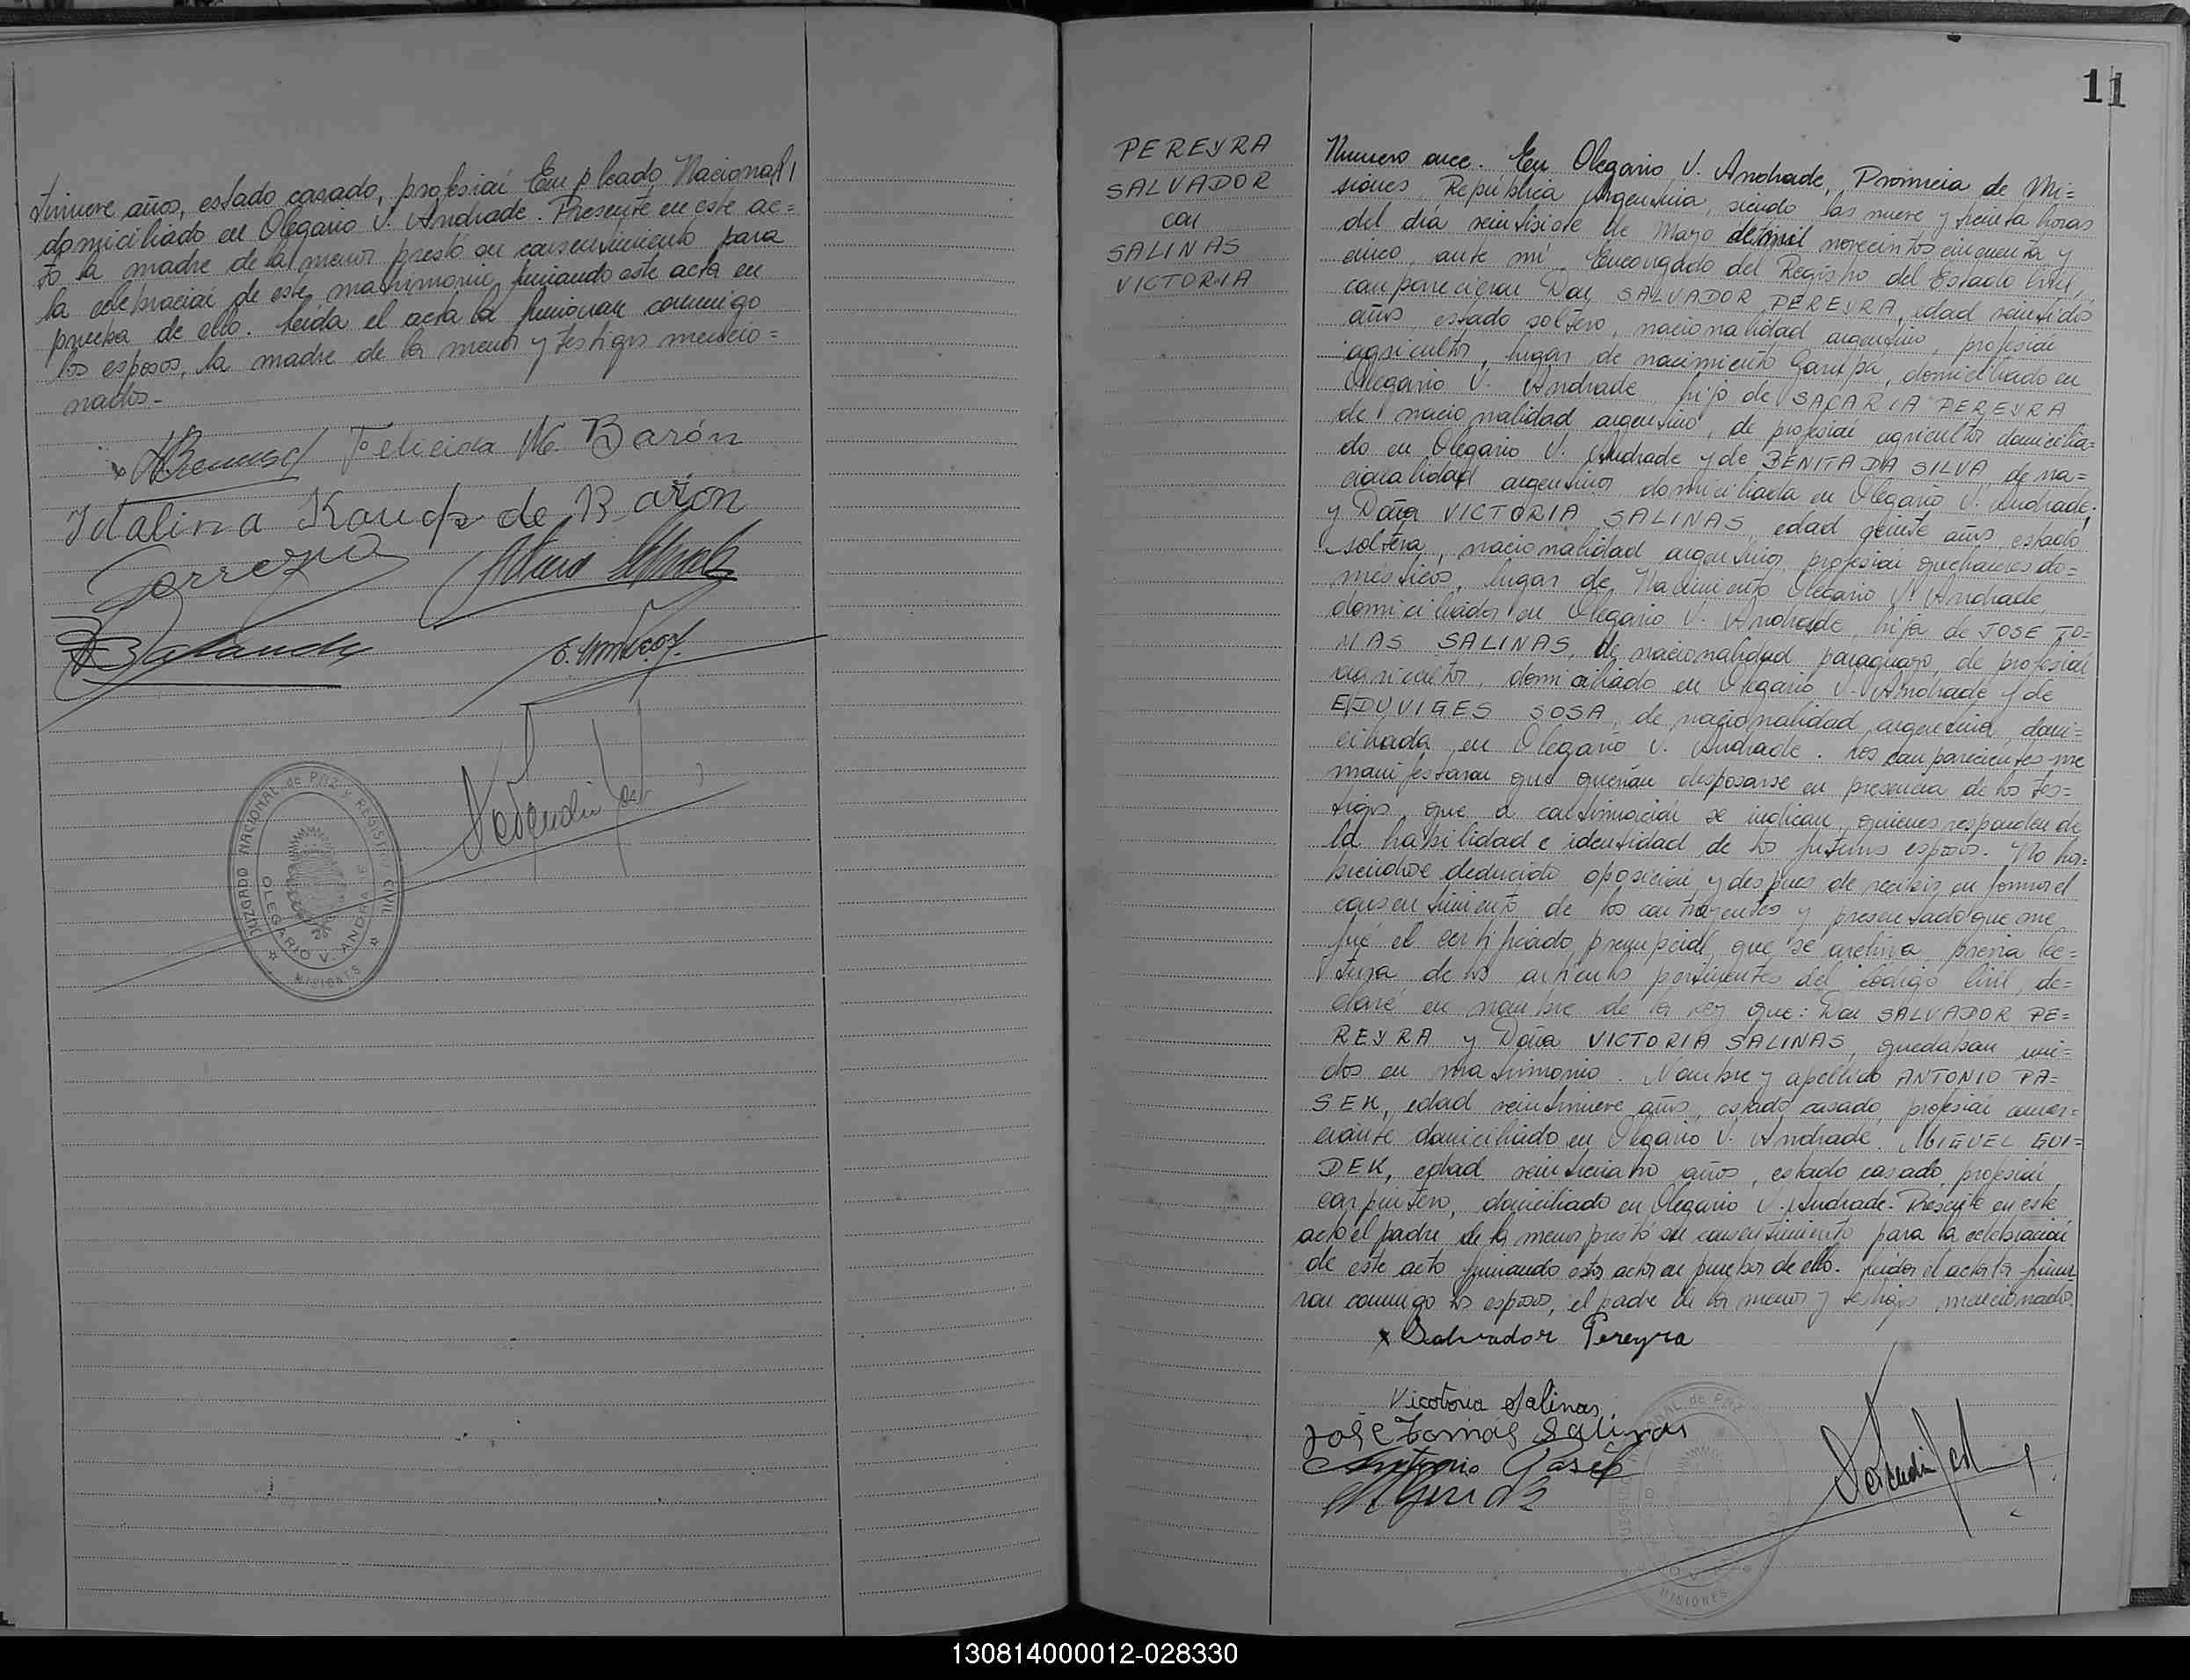 tinueve años, estado casado, profesión Empleado Nacional,
domiciliado en Olegario V. Andrade. Presente en este ac=
to la madre de la menor prestó su consentimiento para
la celebración de este matrimonio firmando este acta en
prueba de ello. Leida el acta la firmaron conmigo
los esposos, la madre de la menor y testigos mencio=
nados.-
Felicida Barón
Italina de Barón
JUZGADO NACIONAL de PAZ y REGISTRO CIVIL
OLEGARIO V. ANDRADE
MISIONES
11
PEREYRA
SALVADOR
con
SALINAS
VICTORIA
Numero once. En Olegario V. Andrade, Provincia de Mi=
siones, República Argentina, siendo las nueve y treinta horas
del día veintisiete de Mayo de mil novecintos cincuenta y
cinco, ante mí, Encargado del Registro del Estado Civil,
comparecieron Don SALVADOR PEREYRA, edad veintidos
años, estado soltero, nacionalidad argentino, profesión
agricultor, lugar de nacimiento Garupa, domiciliado en
Olegario V. Andrade, hijo de SACARIA PEREYRA
de nacionalidad argentino, de profesión agricultor domicilia=
do en Olegario V. Andrade y de BENITA DA SILVA, de na=
cionalidad argentina domiciliada en Olegario V. Andrade;
y Doña VICTORIA SALINAS, edad veinte años, estado
soltera, nacionalidad argentina, profesión quehaceres do=
mésticos, lugar de Nacimiento Olegario V. Andrade,
domiciliada en Olegario V. Andrade, hija de JOSE TO=
MAS SALINAS, de nacionalidad paraguayo, de profesión
agricultor, domiciliado en Olegario V. Andrade y de
EDUVIGES SOSA, de nacionalidad argentina, domi=
ciliada en Olegario V. Andrade. Los comparecientes me
manifestaron que querían desposarse en presencia de los tes=
tigos que a continuación se indican, quienes responden de
la habilidad e identidad de los futuros esposos. No ha=
biendose deducido oposición y despues de recibir en forma el
consentimiento de los contrayentes y presentadoque me
fué el certificado prenupcial, que se archiva, previa lec=
tura de los artículos pertinentes del Código Civil, de=
claré en nombre de la ley que: Don SALVADOR PE=
REYRA y Doña VICTORIA SALINAS, quedaban uni=
dos en matrimonio. Nombre y apellido ANTONIO PA=
SEK, edad veintinueve años, estado casado, profesión comer=
ciante domiciliado en Olegario V. Andrade. MIGUEL GUI=
DEK, edad veinticuatro años, estado casado, profesión
carpintero, domiciliado en Olegario V. Andrade. Presente en este
acto el padre de la menor prestó su consentimiento para la celebración
de este acto firmando esta acta en prueba de ello. Leida el acta la firma
ron conmigo los esposos, el padre de la menor y testigos mencionados.
x Salvador Pereyra
Vicotoria Salinas
José Tomás Salinas
Antonio Pasek
MISIONES
130814000012-028330